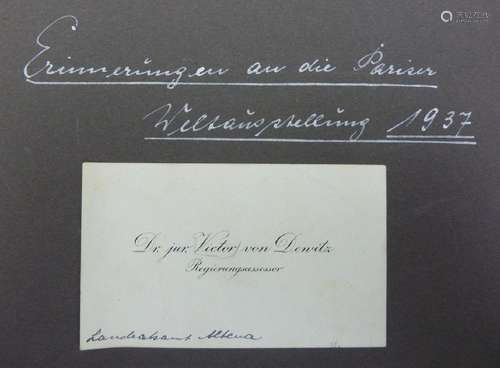 Erinnerungen an die Pariser
Weltausstellung 1937
Dr. jur. Victor von Dewitz
Regierungsassessor
Landratsamt Altena